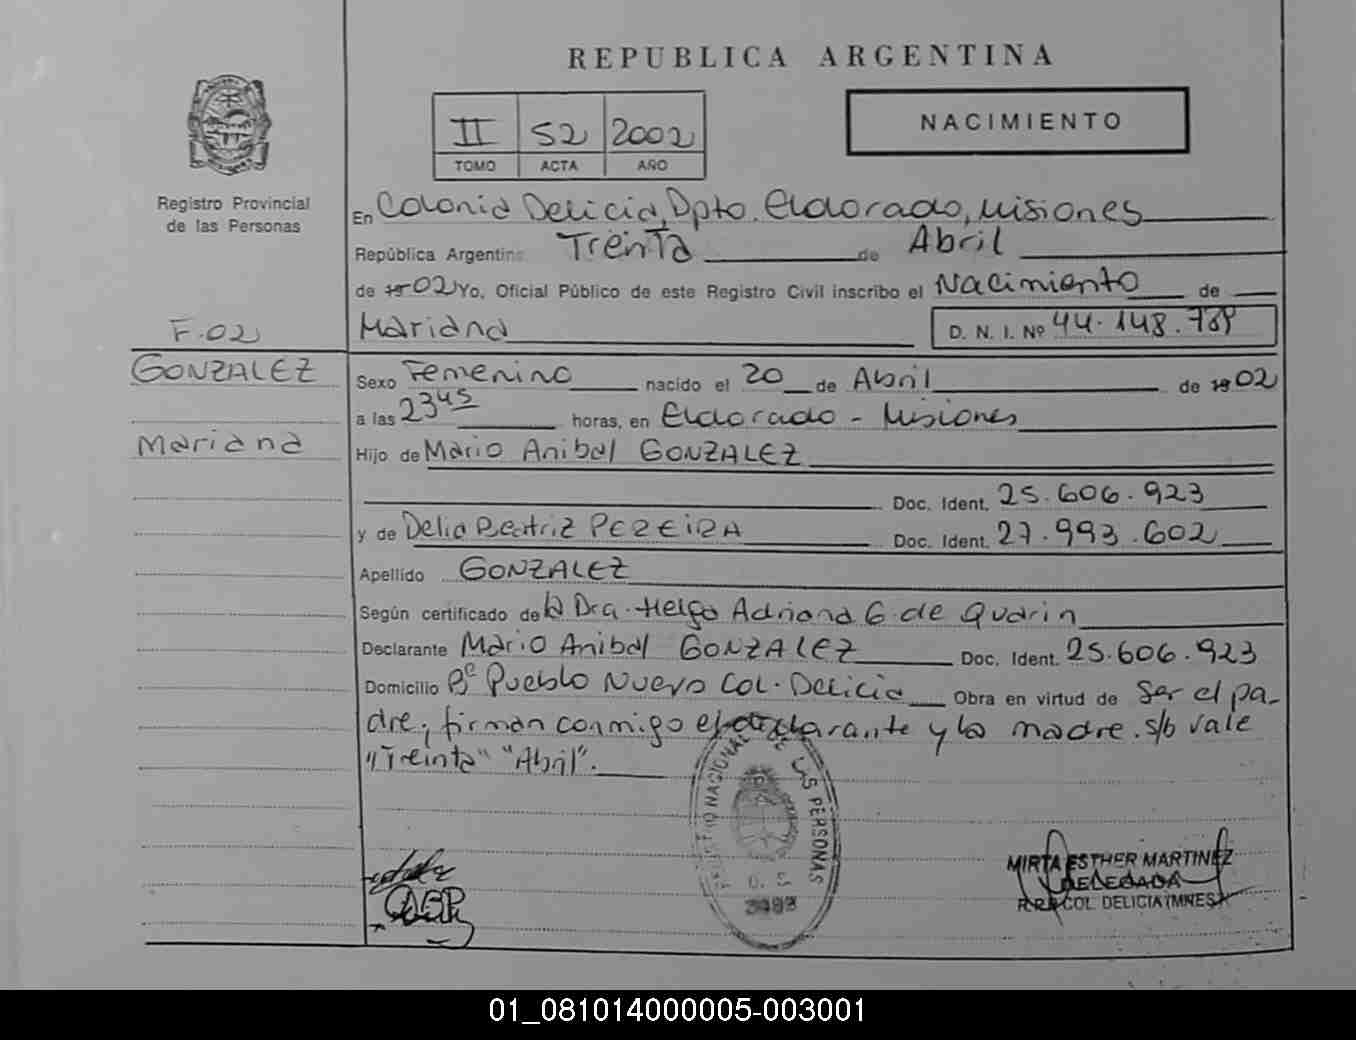 REPUBLICA ARGENTINA
II 52 2002
TOMO ACTA AÑO
NACIMIENTO
Registro Provincial
de las Personas
En Colonia Delicia, Dpto. Eldorado, Misiones
República Argentina Treinta de Abril
de 19 02 Yo, Oficial Público de este Registro Civil inscribo el Nacimiento de
Mariana D. N. I. Nº 44.148.789
F.02
GONZALEZ
Mariana
Sexo Femenino nacido el 20 de Abril de 19 02
a las 23 45 horas, en Eldorado - Misiones
Hijo de Mario Anibal GONZALEZ
Doc. Ident. 25.606.923
y de Delia Beatriz PEREIRA Doc. Ident. 27.993.602
Apellido GONZALEZ
Según certificado de la Dra. Helga Adriana G. de Quarin
Declarante Mario Anibal GONZALEZ Doc. Ident. 25.606.923
Domicilio Bº Pueblo Nuevo Col. Delicia Obra en virtud de Ser el pa-
dre; firman conmigo el declarante y la madre. s/b vale
"Treinta" "Abril".
NACIONAL DE LAS PERSONAS
3493
MIRTA ESTHER MARTINEZ
DELEGADA
COL. DELICIA (MNES)
01_081014000005-003001